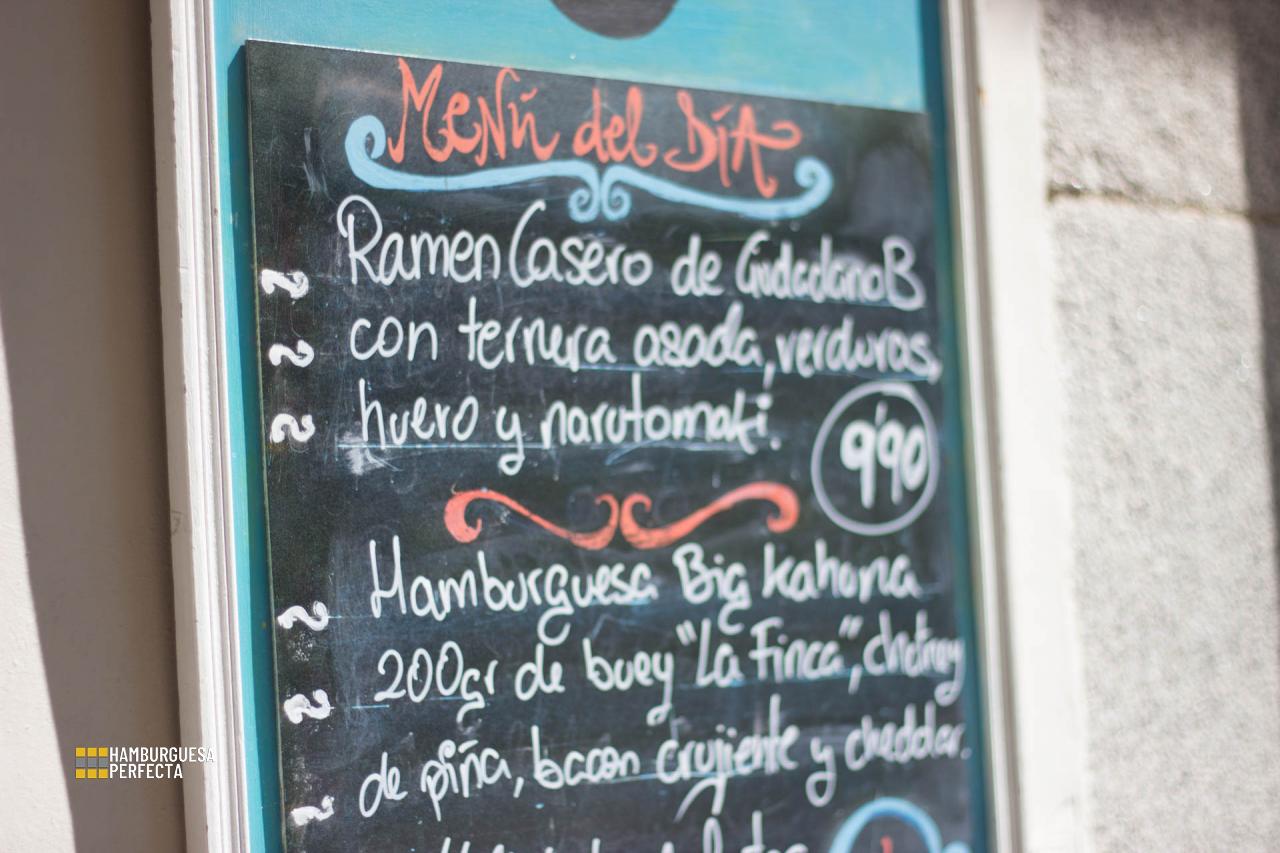 Menú del Día
Ramen Casero de Ciudadano B
con ternera asada, verduras,
huevo y narutomaki.
9'90
Hamburguesa Big Kahuna
200gr de buey "La Finca", chutney
de piña, bacon crujiente y cheddar.
HAMBURGUESA
PERFECTA